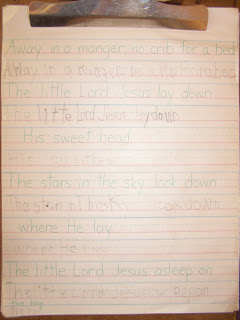 Away in a manger, no crib for a bed
Away in a manger, no crib for a bed
The little Lord Jesus lay down
The little Lord Jesus lay down
His sweet head
His sweet head
The stars in the sky look down
The stars in the sky look down
where He lay
where He lay
The little Lord Jesus asleep on
The little Lord Jesus asleep on
the hay